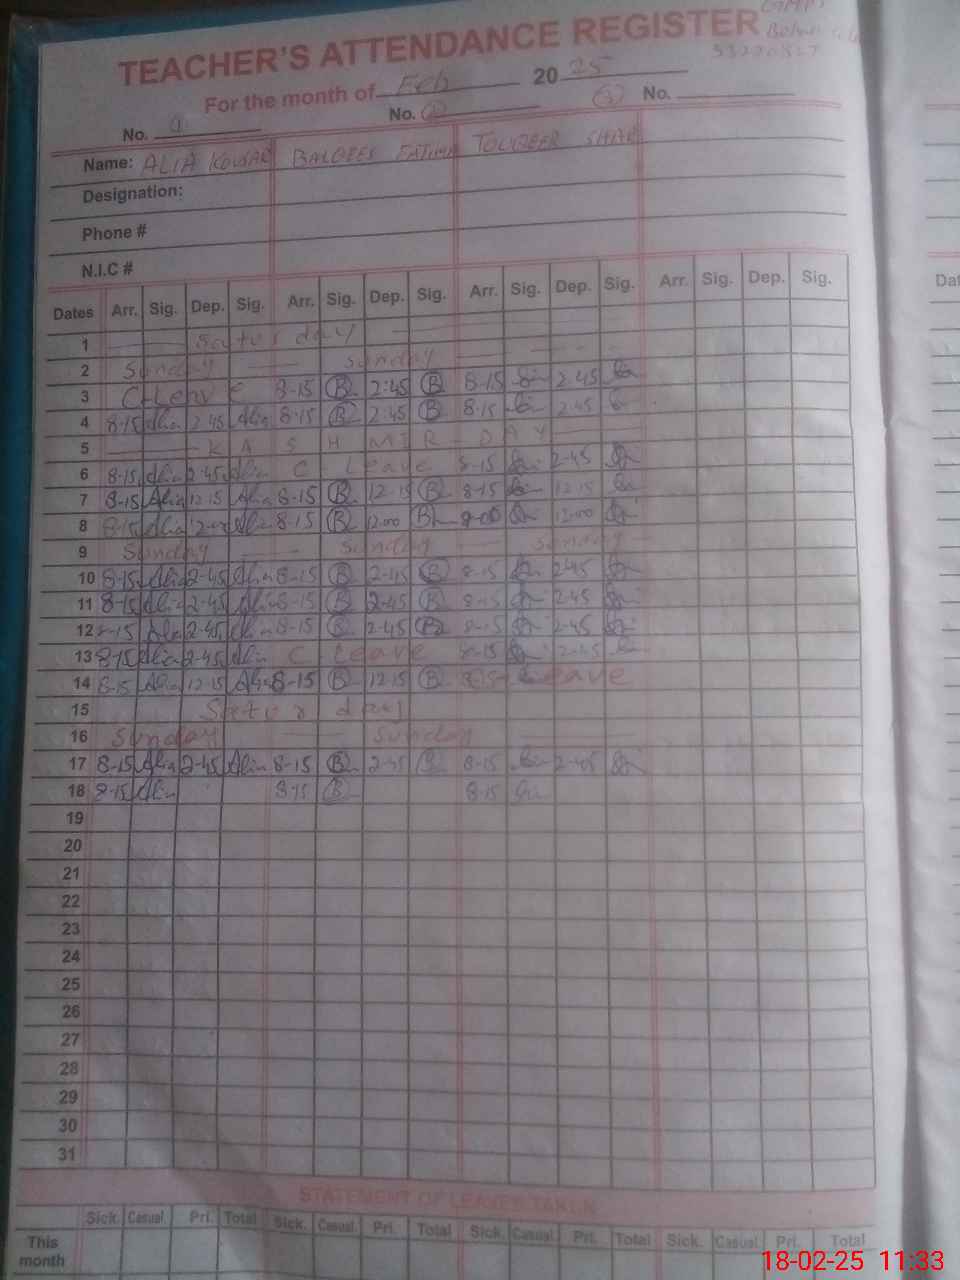 TEACHER'S ATTENDANCE REGISTER
53270827
For the month of Feb 2025
No. 1 No. 2 3 No.
Name: ALIA KOUSAR BALQEES FATIMA TOUQEER SHAH
Designation:
Phone #
N.I.C #
Dates Arr. Sig. Dep. Sig. Arr. Sig. Dep. Sig. Arr. Sig. Dep. Sig. Arr. Sig. Dep. Sig.
1 Saturday
2 Sunday Sunday
3 C-Leave 8-15 B 2:45 B 8-15 2-45
4 8-15 Alia 2-45 Alia 8-15 B 2-45 B 8-15 2-45
5 KASHMIR-DAY
6 8-15 Alia 2-45 Alia C-Leave 8-15 2-45
7 8-15 Alia 12-15 Alia 8-15 B 12-15 B 8-15 12-15
8 8-15 Alia 12-00 Alia 8-15 B 12-00 B 8-00 12-00
9 Sunday Sunday Sunday
10 8-15 Alia 2-45 Alia 8-15 B 2-45 B 8-15 2-45
11 8-15 Alia 2-45 Alia 8-15 B 2-45 B 8-15 2-45
12 8-15 Alia 2-45 Alia 8-15 B 2-45 B 8-15 2-45
13 8-15 Alia 2-45 Alia C Leave 8-15 2-45
14 8-15 Alia 12-15 Alia 8-15 B 12-15 B Leave
15 Saturday
16 Sunday Sunday
17 8-15 Alia 2-45 Alia 8-15 B 2-45 B 8-15 2-45
18 8-15 Alia 8-15 B 8-15
19
20
21
22
23
24
25
26
27
28
29
30
31
STATEMENT OF LEAVES TAKEN
Sick. Casual. Pri. Total Sick. Casual. Pri. Total Sick. Casual. Pri. Total Sick. Casual. Pri. Total
This month
18-02-25 11:33